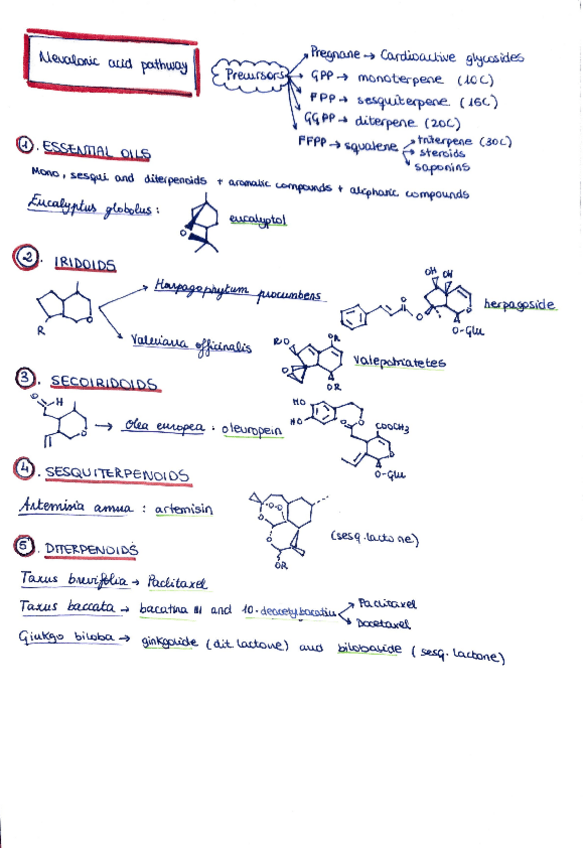 Mevalonic acid pathway
Precursors
Pregnane → Cardioactive glycosides
GPP → monoterpene (10C)
FPP → sesquiterpene (15C)
GGPP → diterpene (20C)
FFPP → squalene → triterpene (30C)
→ steroids
→ saponins
① . ESSENTIAL OILS
Mono, sesqui and diterpenoids + aromatic compounds + aliphatic compounds
Eucalyptus globolus :
O
eucalyptol
② . IRIDOIDS
O
R
Harpagophytum procumbens
OH OH
O
O
O
O-Glu
herpagoside
Valeriana officinalis
RO
OR
O
O
OR
valepotriatetes
③ . SECOIRIDOIDS
O
H
O
→ Olea europea : oleuropein
HO
HO
O
O
COOCH3
O
O-Glu
④ . SESQUITERPENOIDS
Artemisia annua : artemisin
O
O
O
O
OR
(sesq. lactone)
⑤ . DITERPENOIDS
Taxus brevifolia → Paclitaxel
Taxus baccata → bacatina III and 10-deacetylbacatin
→ Paclitaxel
→ Docetaxel
Ginkgo biloba → ginkgolide (dit lactone) and bilobaside (sesq. lactone)